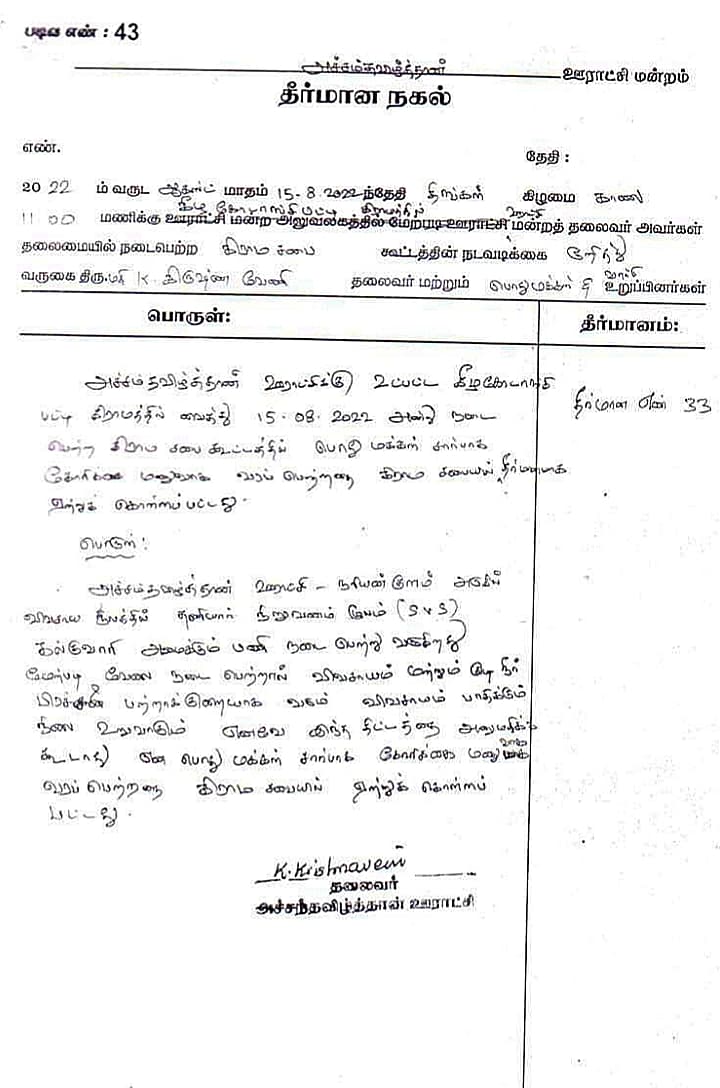 படிவ எண் : 43
அச்சம்தவிழ்த்தான் ஊராட்சி மன்றம்
தீர்மான நகல்
எண்.
தேதி :
2022 ம் வருட ஆகஸ்ட் மாதம் 15-8-2022ந்தேதி திங்கள் கிழமை காலை
கீழ கோடாங்கிபட்டி கிராமத்தில்
11 00 மணிக்கு ஊராட்சி மன்ற அலுவலகத்தில் மேற்படி ஊராட்சி மன்றத் தலைவர் அவர்கள்
தலைமையில் நடைபெற்ற கிராம சபை கூட்டத்தின் நடவடிக்கை
வருகை திரு.மதி K. கிருஷ்ண வேணி தலைவர் மற்றும் பொதுமக்கள் & வார்டு உறுப்பினர்கள்
பொருள்: தீர்மானம்:
அச்சம்தவிழ்த்தான் ஊராட்சிக்கு உட்பட்ட கீழகோடாங்கி
பட்டி கிராமத்தில் வைத்து 15-08-2022 அன்று நடை
தீர்மான எண் 33
பெற்ற கிராம சபை கூட்டத்தில் பொது மக்கள் சார்பாக
கோரிக்கை மனுவாக வரப் பெற்றதை கிராம சபையில் தீர்மானமாக
ஏற்றுக் கொள்ளப் பட்டது.
பொருள்:
அச்சம்தவிழ்த்தான் ஊராட்சி - நரியன்குளம் அருகில்
விவசாய நிலத்தில் தனியார் நிறுவனம் மூலம் (SVS)
கல்குவாரி அமைக்கும் பணி நடை பெற்று வருகிறது
மேற்படி வேலை நடை பெற்றால் விவசாயம் மற்றும் குடி நீர்
பிரச்சனை பற்றாக்குறையாக வரும் விவசாயம் பாதிக்கும்
நிலை உருவாகும் எனவே இந்த திட்டத்தை அனுமதிக்க
கூடாது என பொது மக்கள் சார்பாக கோரிக்கை மனு
வரப் பெற்றதை கிராம சபையில் ஏற்றுக் கொள்ளப்
பட்டது.
K. Krishnaveni
தலைவர்
அச்சந்தவிழ்த்தான் ஊராட்சி